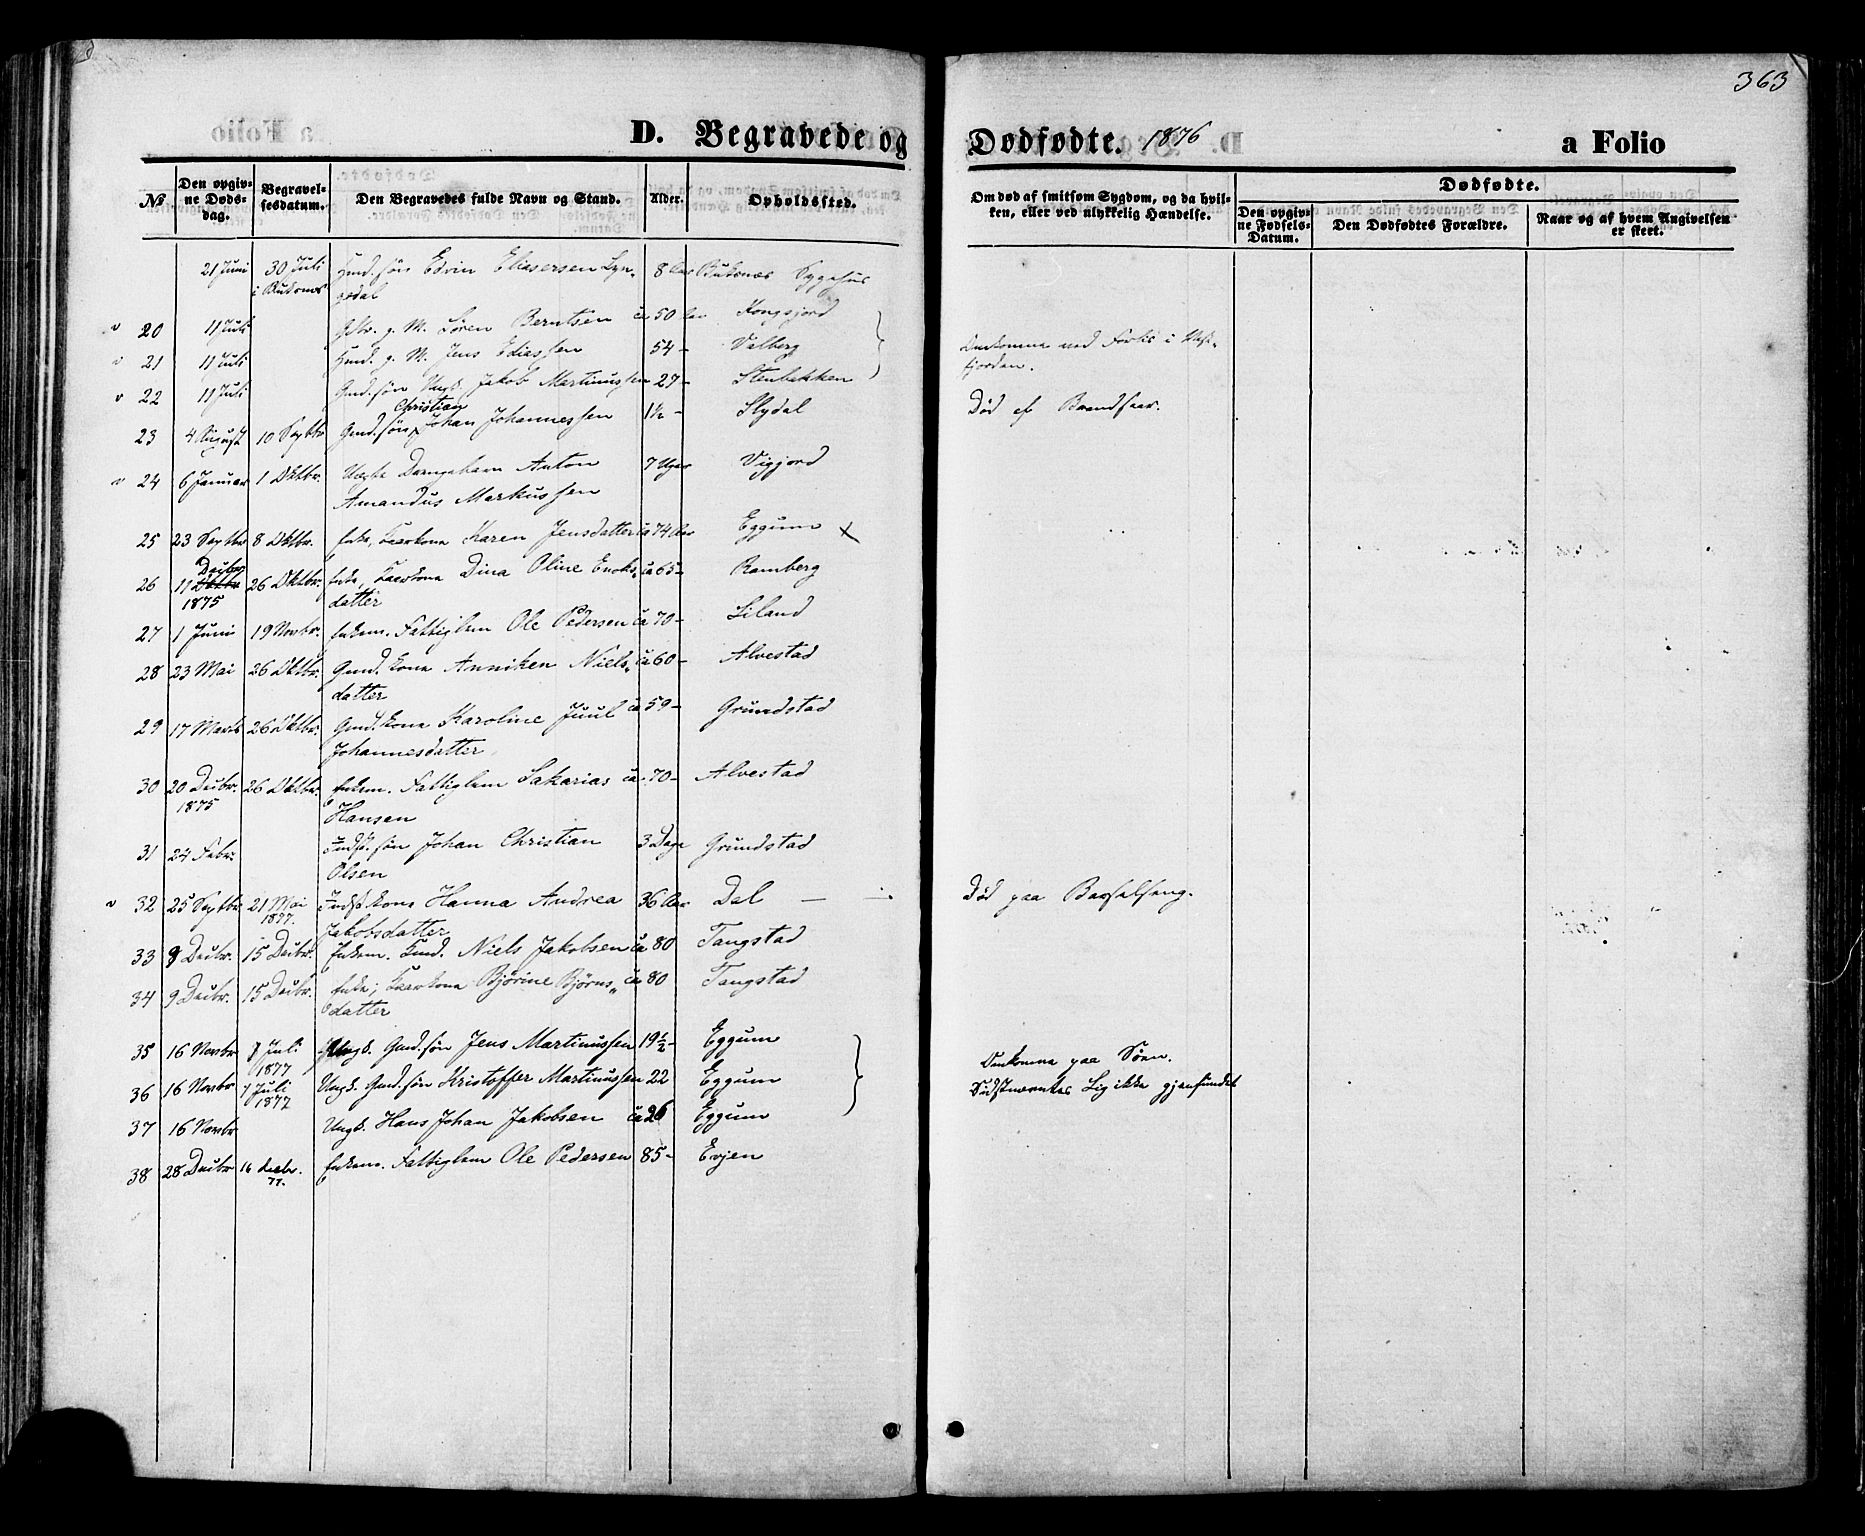 363
D. Begravede og Dødfødte. 1876 a Folio
№ Den opgivne Dødsdag. Begravelsesdatum. Den Begravedes fulde Navn og Stand. Alder. Opholdssted. Om død af smitsom Sygdom, og da hvilken, eller ved ulykkelig Hændelse. Dødfødte.
Den opgivne Fødsels-Datum. Den Dødfødtes Forældre. Naar og af hvem Angivelsen er skeet.
21 Juni 30 Juli søn Edvin Eliasersen Lyn- 8 Aar Buksnes Sygehus
i Buksnes gedal
20 11 Juli g. M. Søren Berntsen ca 50 Aar Kongsjord
21 11 Juli g. M. Jens Ediassen 54 - Valberg Omkomne ved Forlis i Vest-
fjorden.
22 11 Juli Gmd. søn Ungk. Jakob Martinussen 27 - Stenbakken
Christian
23 4 August 10 Septbr Gmd. søn Johan Johannessen 1½ - Slydal Død af Brandsaar.
24 6 Januar 1 Oktbr. Uægte Drengebarn Anton 7 Uger Vigjord
Amandus Markussen
25 23 Septbr 8 Oktbr. Enke, Kaarkone Karen Jensdatter ca 74 Aar Eggum x
Decbr
26 11 Oktbr 26 Oktbr. Enke, Kaarkone Dina Oline Enoks- ca 65 - Ramberg
1875 datter
27 1 Juni 19 Novbr. Enkem. Fattiglem Ole Pedersen ca 70 - Liland
28 23 Mai 26 Oktbr. Gmd. kone Anniken Niels- ca 60 - Alvestad
datter
29 17 Marts 26 Oktbr. Gmd. kone Karoline Juul ca 59 - Grundstad
Johannesdatter
30 20 Decbr. 26 Oktbr. Enkem. Fattiglem Sakarias ca. 70 - Alvestad
1875 Hansen
31 24 Febr. Indst. søn Johan Christian 3 Dage Grundstad
Olsen
32 25 Septbr 21 Mai Indst kone Hanna Andrea 36 Aar Dal — Død paa Barselseng.
1877. Jakobsdatter
33 8 Decbr. 15 Decbr. Enkem. Niels Jakobsen ca 80 Tangstad
34 9 Decbr. 15 Decbr. Enke, Kaarkone Bjørine Bjørns- ca 80 Tangstad
datter
35 16 Novbr 1 Juli Ungk. Gmd. søn Jens Martinussen 19½ - Eggum Omkomne paa Søen.
1877
36 16 Novbr 1 Juli Ungk. Gmd. søn Kristoffer Martinussen 22 Eggum Sidstnævntes Lig ikke gjenfundet
1877
37 16 Novbr Ungk. Hans Johan Jakobsen ca 26 Eggum
38 28 Decbr 16 decbr. Enkem. Fattiglem Ole Pedersen 85 - Evjen
77.